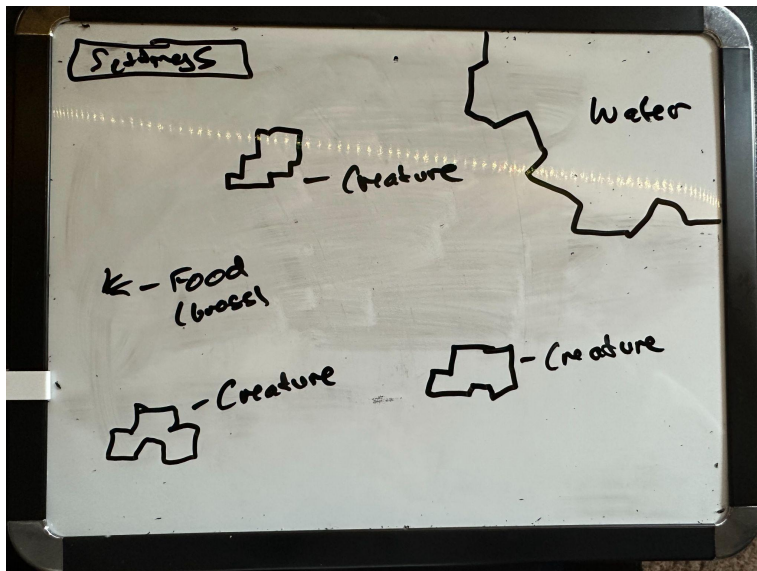 Settings
Water
- Creature
- Food
(Grass)
- Creature
- Creature